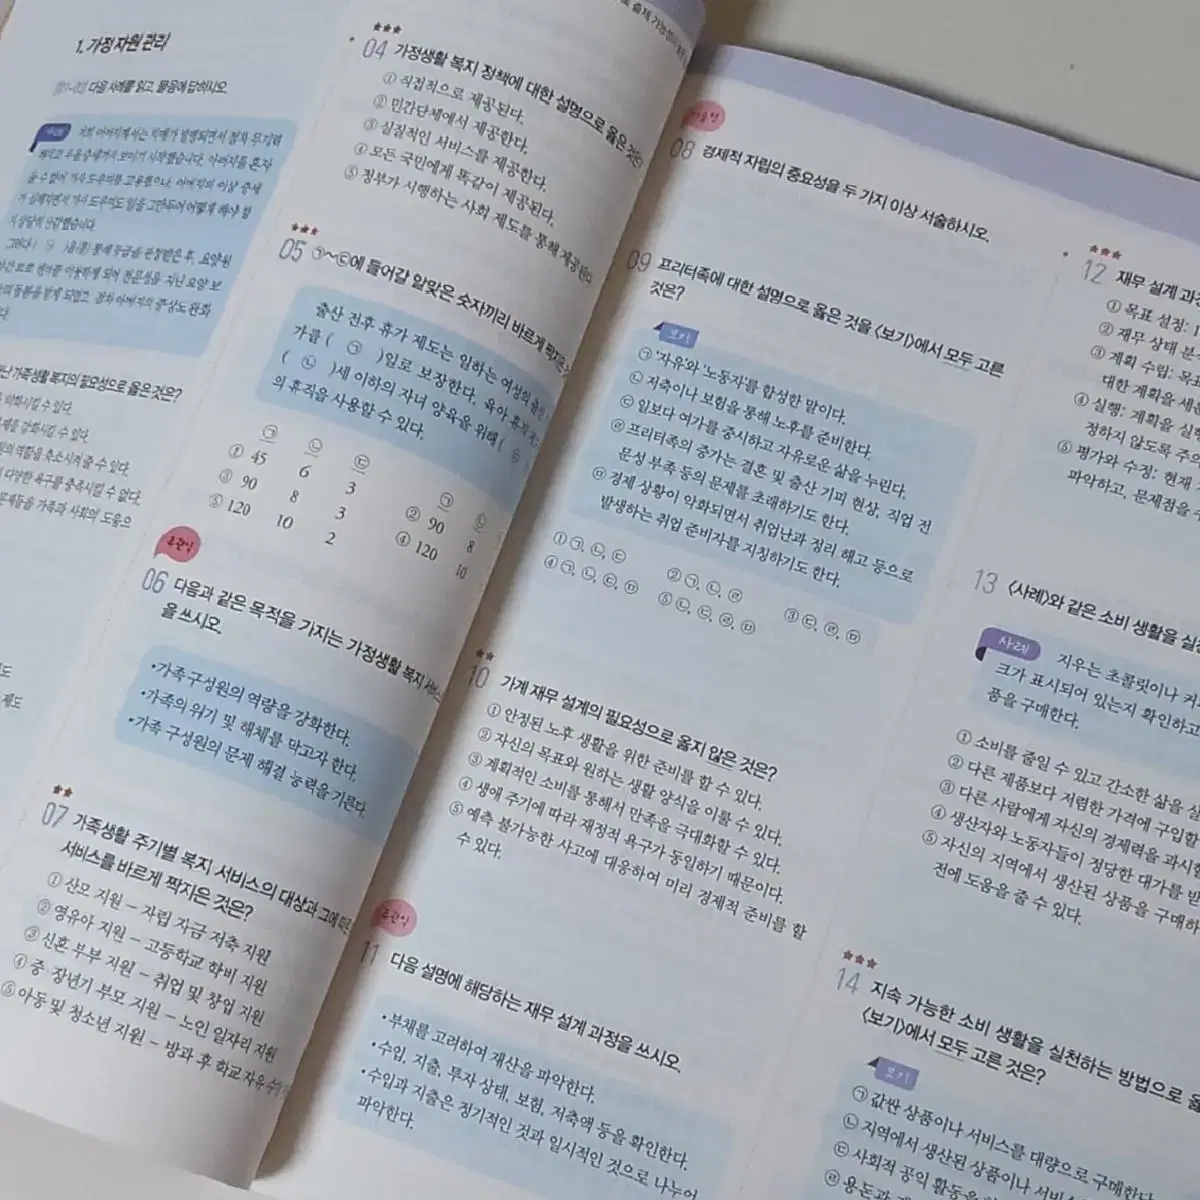 1. 가정 자원 관리
다음 사례를 읽고, 물음에 답하시오.
사례
04 가정생활 복지 정책에 대한 설명으로 옳은 것은
① 직접적으로 제공된다.
② 민간단체에서 제공한다.
③ 실질적인 서비스를 제공한다.
④ 모든 국민에게 똑같이 제공된다.
⑤ 정부가 시행하는 사회 제도를 통해 제공된다
05 ㉠~㉢에 들어갈 알맞은 숫자끼리 바르게 짝지은
출산 전후 휴가 제도는 일하는 여성의 출산
가를 ( ㉠ )일로 보장한다. 육아 휴직
( ㉡ )세 이하의 자녀 양육을 위해 ( ㉢
의 휴직을 사용할 수 있다.
㉠ ㉡ ㉢ ㉠ ㉡
① 45 6 3 ② 90 8
③ 90 8 3 ④ 120 10
⑤ 120 10 2
주관식
06 다음과 같은 목적을 가지는 가정생활 복지 서비스
을 쓰시오.
•가족 구성원의 역량을 강화한다.
•가족의 위기 및 해체를 막고자 한다.
•가족 구성원의 문제 해결 능력을 기른다.
07 가족생활 주기별 복지 서비스의 대상과 그에 따른
서비스를 바르게 짝지은 것은?
① 산모 지원 – 자립 자금 저축 지원
② 영유아 지원 – 고등학교 학비 지원
③ 신혼 부부 지원 – 취업 및 창업 지원
④ 중·장년기 부모 지원 – 노인 일자리 지원
⑤ 아동 및 청소년 지원 – 방과 후 학교 자유 수
08 경제적 자립의 중요성을 두 가지 이상 서술하시오.
09 프리터족에 대한 설명으로 옳은 것을 〈보기〉에서 모두 고른
것은?
보기
㉠ '자유'와 '노동자'를 합성한 말이다.
㉡ 저축이나 보험을 통해 노후를 준비한다.
㉢ 일보다 여가를 중시하고 자유로운 삶을 누린다.
㉣ 프리터족의 증가는 결혼 및 출산 기피 현상, 직업 전
문성 부족 등의 문제를 초래하기도 한다.
㉤ 경제 상황이 악화되면서 취업난과 정리 해고 등으로
발생하는 취업 준비자를 지칭하기도 한다.
① ㉠, ㉡, ㉢ ② ㉠, ㉡, ㉣ ③ ㉢, ㉣, ㉤
④ ㉠, ㉡, ㉢, ㉤ ⑤ ㉡, ㉢, ㉣, ㉤
10 가계 재무 설계의 필요성으로 옳지 않은 것은?
① 안정된 노후 생활을 위한 준비를 할 수 있다.
② 자신의 목표와 원하는 생활 양식을 이룰 수 있다.
③ 계획적인 소비를 통해서 만족을 극대화할 수 있다.
④ 생애 주기에 따라 재정적 욕구가 동일하기 때문이다.
⑤ 예측 불가능한 사고에 대응하여 미리 경제적 준비를 할
수 있다.
주관식
11 다음 설명에 해당하는 재무 설계 과정을 쓰시오.
•부채를 고려하여 재산을 파악한다.
•수입, 지출, 투자 상태, 보험, 저축액 등을 확인한다.
•수입과 지출은 정기적인 것과 일시적인 것으로 나누어
파악한다.
12 재무 설계 과정
① 목표 설정:
② 재무 상태 분
③ 계획 수립: 목표
대한 계획을 세운
④ 실행: 계획을 실행
정하지 않도록 주의
⑤ 평가와 수정: 현재
파악하고, 문제점을
13 〈사례〉와 같은 소비 생활을 실
사례
지우는 초콜릿이나 커
크가 표시되어 있는지 확인하고
품을 구매한다.
① 소비를 줄일 수 있고 간소한 삶을
② 다른 제품보다 저렴한 가격에 구입할
③ 다른 사람에게 자신의 경제력을 과시할
④ 생산자와 노동자들이 정당한 대가를 받
⑤ 자신의 지역에서 생산된 상품을 구매하
전에 도움을 줄 수 있다.
14 지속 가능한 소비 생활을 실천하는 방법으로
〈보기〉에서 모두 고른 것은?
보기
㉠ 값싼 상품이나 서비스를 대량으로 구매한다.
㉡ 지역에서 생산된 상품이나 서비스
㉢ 사회적 공익 활동을